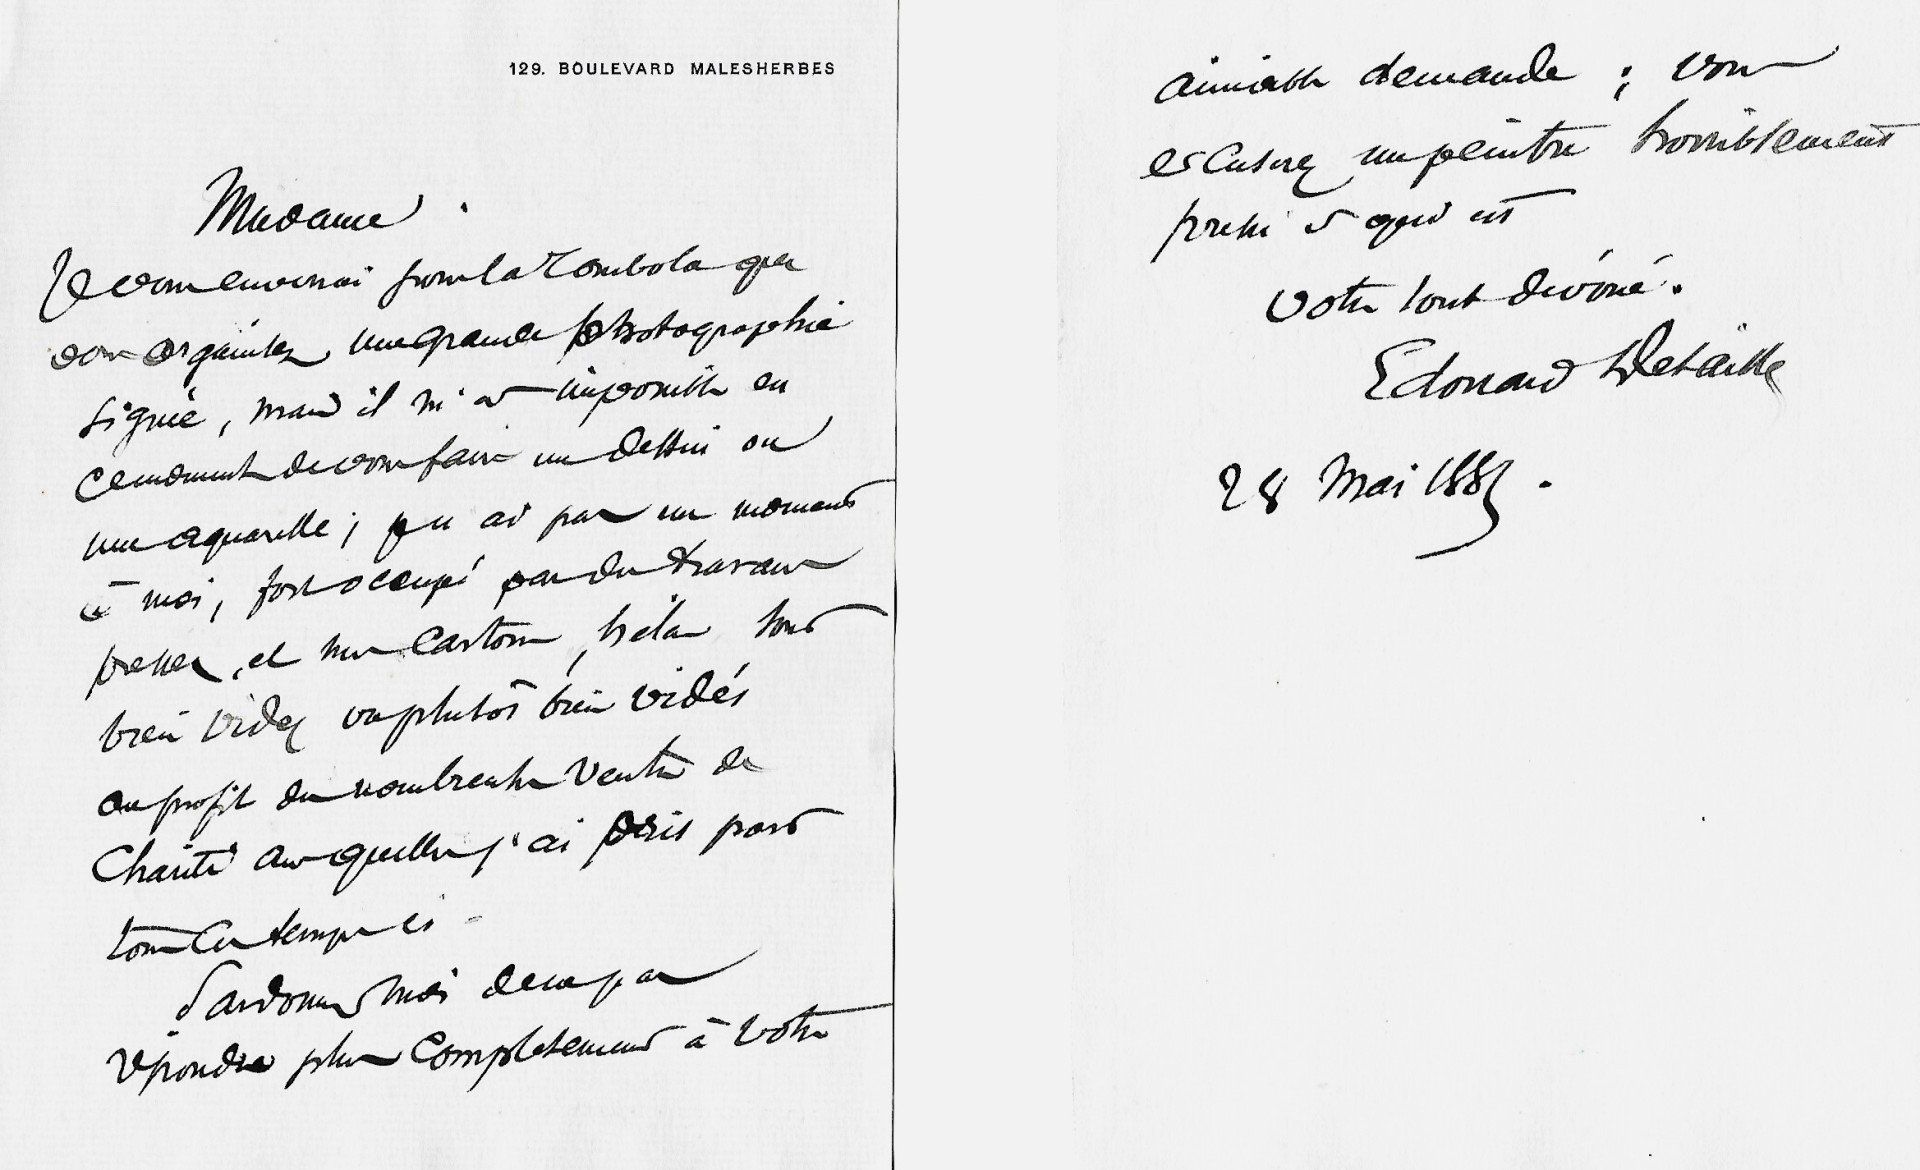 129. BOULEVARD MALESHERBES
Madame.
Je vous enverrai pour la Tombola que
vous organisez une grande photographie
signée, mais il m'est impossible en
ce moment de vous faire un dessin ou
une aquarelle; je n'ai pas un moment
à moi, fort occupé par des travaux
pressés, et mes cartons, hélas sont
bien videz ou plutôt bien vidés
au profit des nombreuses ventes de
Charité auxquelles j'ai pris part
tous ces temps ci -
Pardonnez moi de ne pas
répondre plus complètement à votre
aimable demande ; vous
excuserez un peintre horriblement
pressé et qui est
votre tout dévoué.
Edouard Detaille
28 Mai